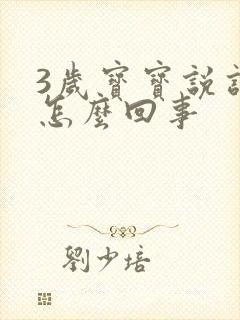 3歲寶寶說
怎麼回事
劉少培